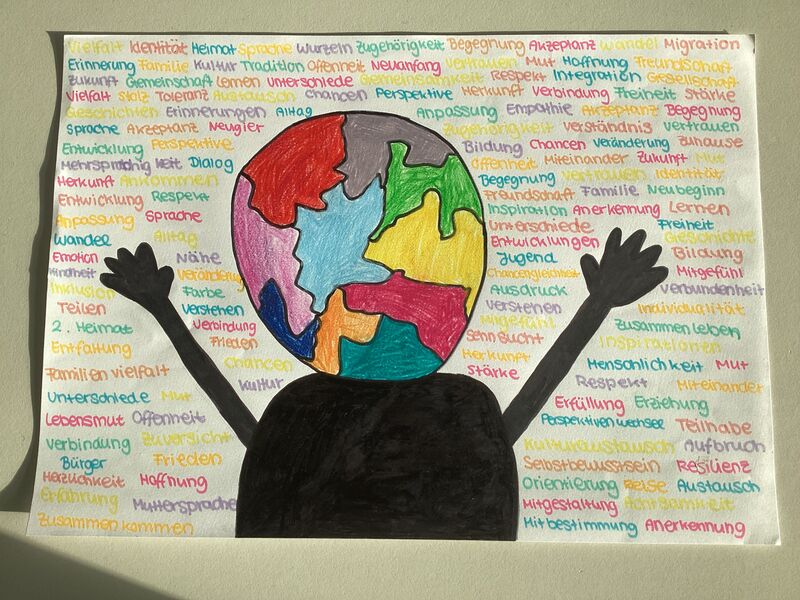 Vielfalt Identität Heimat Sprache Wurzeln Zugehörigkeit Begegnung Akzeptanz Wandel Migration
Erinnerung Familie Kultur Tradition Offenheit Neuanfang Vertrauen Mut Hoffnung Freundschaft
Zukunft Gemeinschaft Lernen Unterschiede Gemeinsamkeit Respekt Integration Gesellschaft
Vielfalt Stolz Toleranz Austausch Chancen Perspektive Herkunft Verbindung Freiheit Stärke
Geschichten Erinnerungen Alltag Anpassung Empathie Akzeptanz Begegnung
Sprache Akzeptanz Neugier Zugehörigkeit Verständnis Vertrauen
Entwicklung Perspektive Bildung Chancen Veränderung Zuhause
Mehrsprachigkeit Dialog Offenheit Miteinander Zukunft Mut
Herkunft Ankommen Begegnung Vertrauen Identität
Entwicklung Respekt Freundschaft Familie Neubeginn
Anpassung Sprache Inspiration Anerkennung Lernen
Unterschiede Freiheit
Wandel Alltag Entwicklungen Geschichte
Emotion Nähe Jugend Bildung
Kindheit Veränderung Chancengleichheit Mitgefühl
Inklusion Farbe Ausdruck Verbundenheit
Teilen Verstehen Verstehen Individualität
2. Heimat Verbindung Mitgefühl Zusammenleben
Entfaltung Frieden Sehnsucht Inspirationen
Familienvielfalt Chancen Herkunft Menschlichkeit Mut
Kultur Stärke Respekt Miteinander
Unterschiede Mut Erfüllung Erziehung
Lebensmut Offenheit Perspektivenwechsel Teilnabe
Verbindung Zuversicht Kulturaustausch Aufbruch
Bürger Frieden Selbstbewusstsein Resilienz
Herzlichkeit Hoffnung Orientierung Reise Austausch
Erfahrung Muttersprache Mitgestaltung Achtsamkeit
Zusammenkommen Mitbestimmung Anerkennung